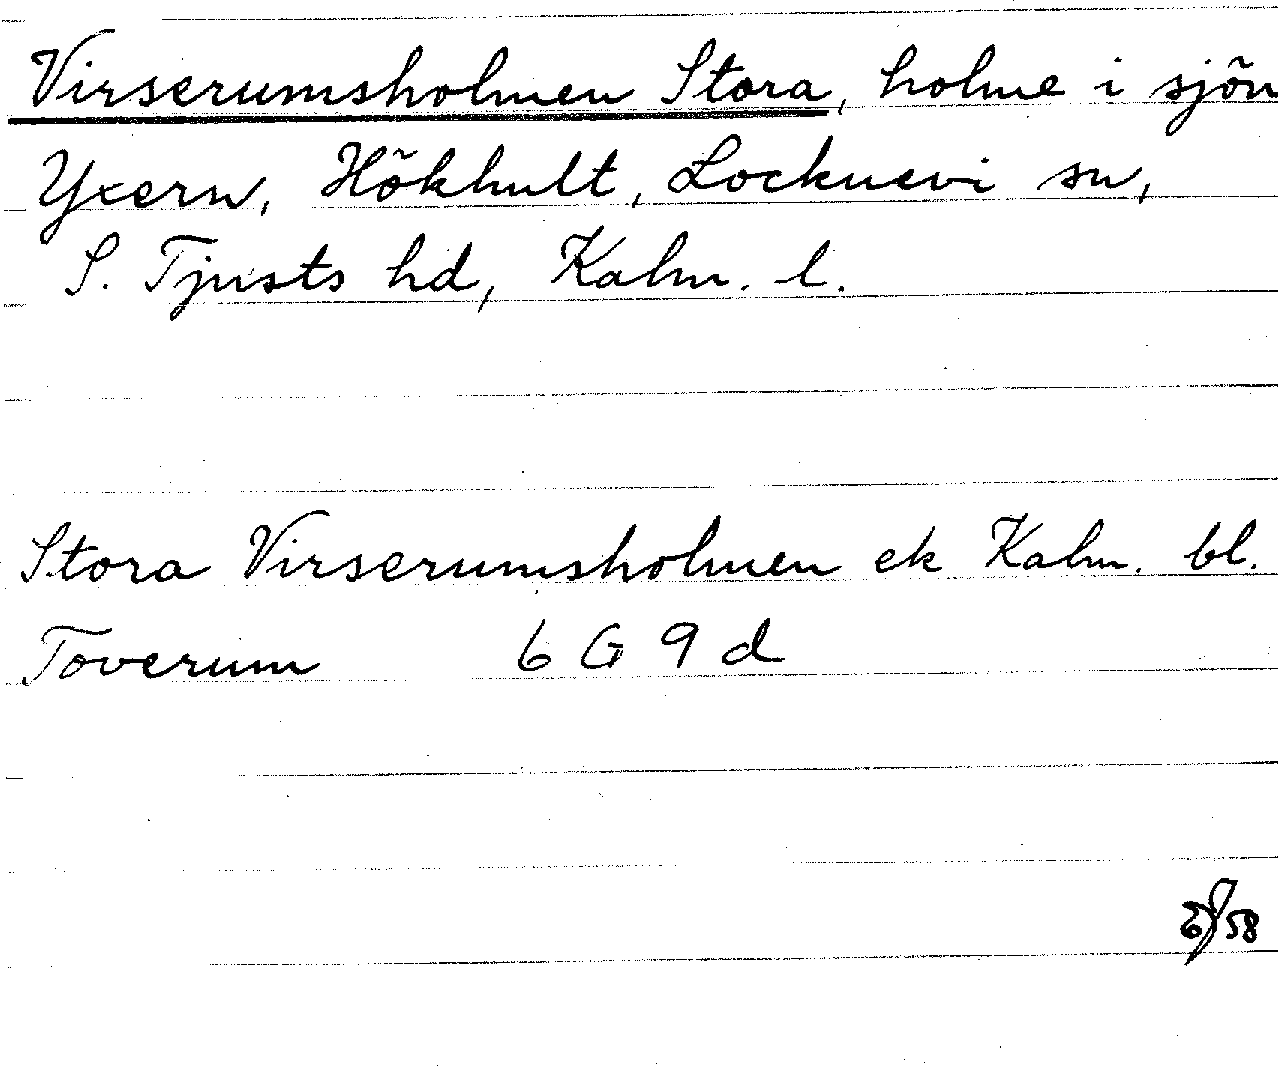 Virserumsholmen Stora, holme i sjön
Yxern, Hökhult, Locknevi sn,
S. Tjusts hd, Kalm. l.
Stora Virserumsholmen ek Kalm. bl.
Toverum 6 G 9 d